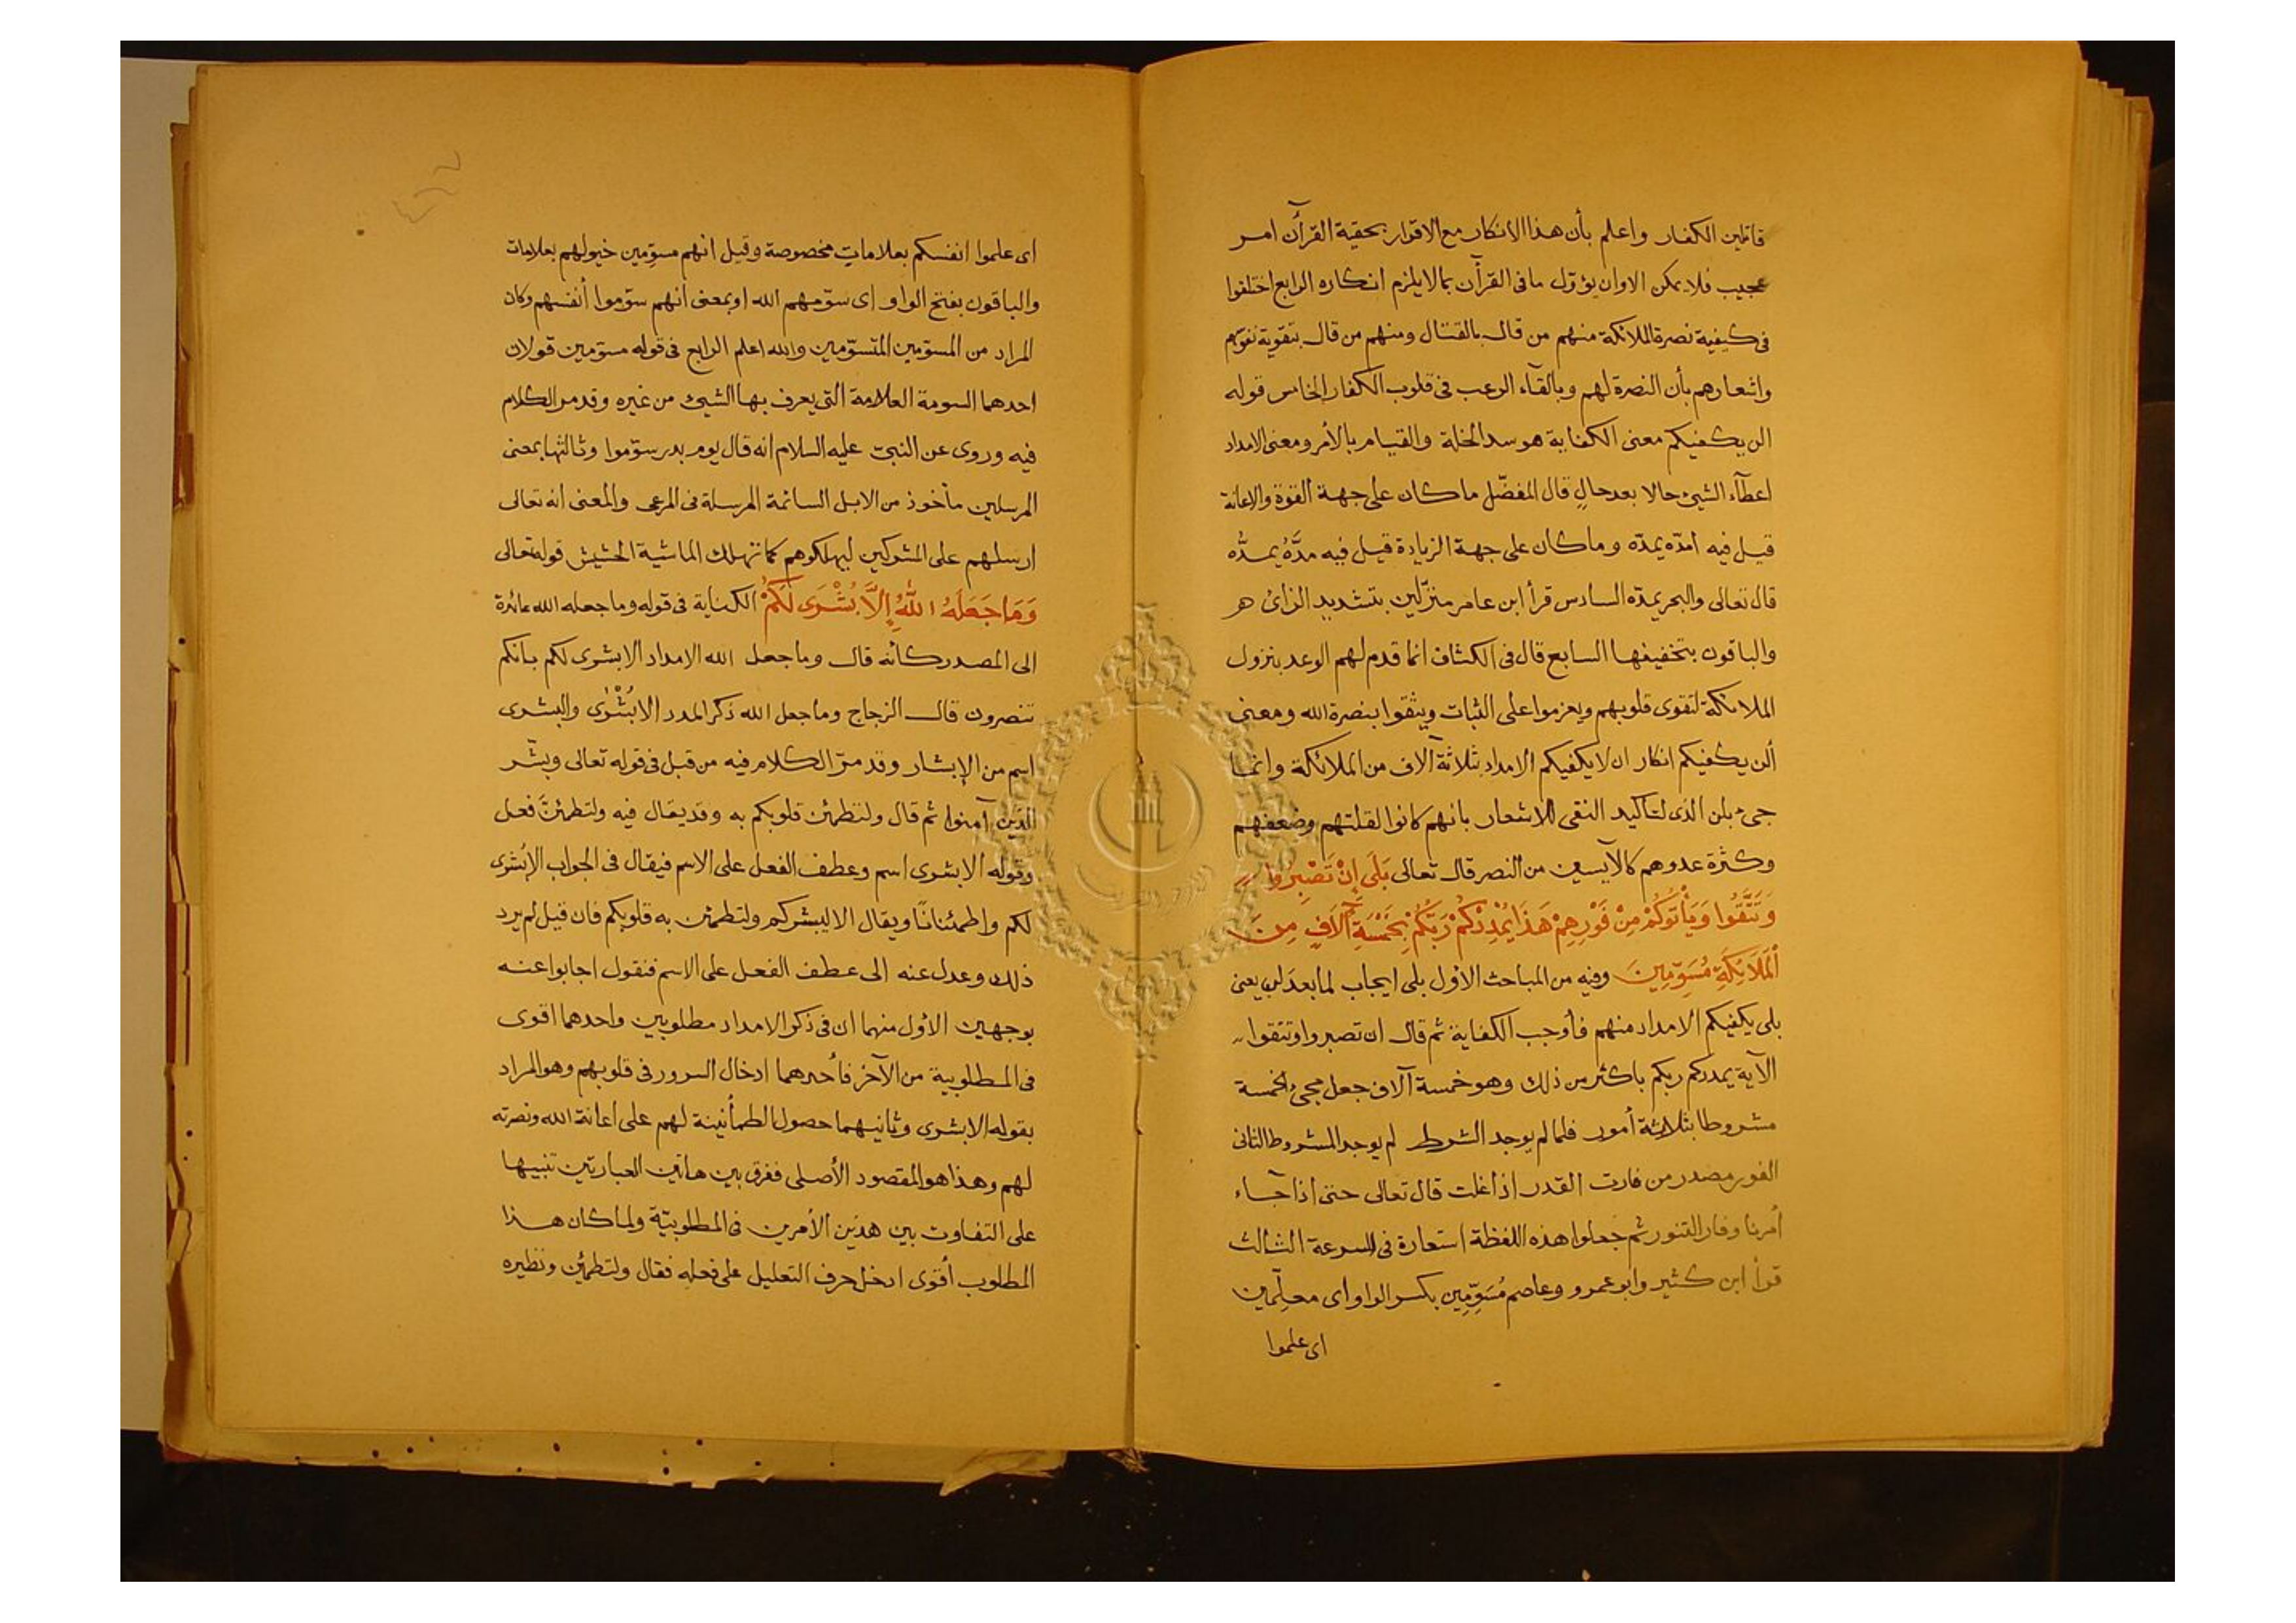 قاتلين الكفار واعلم بأن هذا الانكار مع الاقرار بحقية القرآن امر
عجيب فلا يمكن الا وان يؤوّل ما فى القرآن بما لا يلزم انكاره الرابع اختلفوا
فى كيفية نصرة الملائكة منهم من قال بالقتال ومنهم من قال بتقوية نفوسهم
واشعارهم بأن النصرة لهم وبالقاء الرعب فى قلوب الكفار الخامس قوله
الن يكفيكم معنى الكفاية هو سد الخلة والقيام بالأمر ومعنى الامداد
اعطآء الشيئ حالا بعد حالٍ قال المفضّل ما كان على جهة القوة والاعانة
قيل فيه امدّه يمدّه وما كان على جهة الزيادة قيل فيه مدَّهُ يمدُّه
قال تعالى والبحر يمدّه السادس قرأ ابن عامر منزّلين بتشديد الزائ
والباقون بتخفيفها السابع قال فى الكشاف انما قدم لهم الوعد بنزول
الملائكة لتقوى قلوبهم ويعزموا على الثبات ويثقوا بنصرة الله ومعنى
ألن يكفيكم انكار ان لا يكفيكم الامداد بثلاثة آلاف من الملائكة وانما
جىء بلن الذى لتأكيد النفى للاشعار بانهم كانوا لقلتهم وضعفهم
وكثرة عدوهم كالآيسين من النصر قال تعالى بَلَى إِنْ تَصْبِرُوا
وَتَتَّقُوا وَيَأْتُوكُمْ مِنْ فَوْرِهِمْ هَذَا يُمْدِدْكُمْ رَبُّكُمْ بِخَمْسَةِ آلَافٍ مِنَ
الْمَلَائِكَةِ مُسَوِّمِينَ وفيه من المباحث الأوّل بلى ايجاب لما بعد لن يعنى
بلى يكفيكم الامداد منهم فأوجب الكفاية ثم قال ان تصبروا وتتقوا
الآية يمددكم ربكم باكثر من ذلك وهو خمسة آلاف جعل مجئ الخمسة
مشروطا بثلاثة أمور فلما لم يوجد الشرط لم يوجد المشروط الثانى
الفور مصدر من فارت القدر اذا غلت قال تعالى حتى اذا جآء
أمرنا وفار التنور ثم جعلوا هذه اللفظة استعارة فى السرعة الثالث
قرأ ابن كثير وابو عمرو وعاصم مُسَوِّمِين بكسر الواو اى معلّمين
اى علموا
اى علموا انفسكم بعلاماتٍ مخصوصة وقيل انهم مسوِّمين خيولهم بعلامات
والباقون بفتح الواو اى سوّمهم الله او بمعنى أنهم سوّموا أنفسهم وكان
المراد من المسوّمين المتسوّمين والله اعلم الرابع فى قوله مسوّمين قولان
احدهما السومة العلامة التى يعرف بها الشيئ من غيره وقد مر الكلام
فيه وروى عن النبىّ عليه السلام انه قال يوم بدر سوّموا وثالثها بمعنى
المرسلين مأخوذ من الابل السائمة المرسلة فى المرعى والمعنى انه تعالى
ارسلهم على المشركين ليهلكوهم كما تهلك الماشية الحشيش قوله تعالى
وَمَا جَعَلَهُ اللَّهُ إِلَّا بُشْرَى لَكُمْ الكناية فى قوله وما جعله الله عائدة
الى المصدر كأنه قال وما جعل الله الامداد الا بشرى لكم بانكم
تنصرون قال الزجاج وما جعل الله ذكر المدد الا بُشْرٰى والبشرى
اسم من الإبشار وقد مرّ الكلام فيه من قبل فى قوله تعالى وبشّر
الذين آمنوا ثم قال ولتطمئن قلوبكم به وقد يقال فيه ولتطمئنَّ فعل
وقوله الا بشرى اسم وعطف الفعل على الاسم فيقال فى الجواب الا بُشرى
لكم واطمئنانًا ويقال الا ليبشركم ولتطمئن به قلوبكم فان قيل لم يرد
ذلك وعدل عنه الى عطف الفعل على الاسم فنقول اجابوا عنه
بوجهين الأول منهما ان فى ذكر الامداد مطلوبين واحدهما اقوى
فى المطلوبية من الآخر فأحدهما ادخال السرور فى قلوبهم وهو المراد
بقوله الا بشرى وثانيهما حصول الطمأنينة لهم على اعانة الله ونصرته
لهم وهذا هو المقصود الأصلى ففرق بين هاتين العبارتين تنبيها
على التفاوت بين هذين الأمرين فى المطلوبيّة ولما كان هذا
المطلوب أقوى ادخل حرف التعليل على فعله فقال ولتطمئن ونظيره